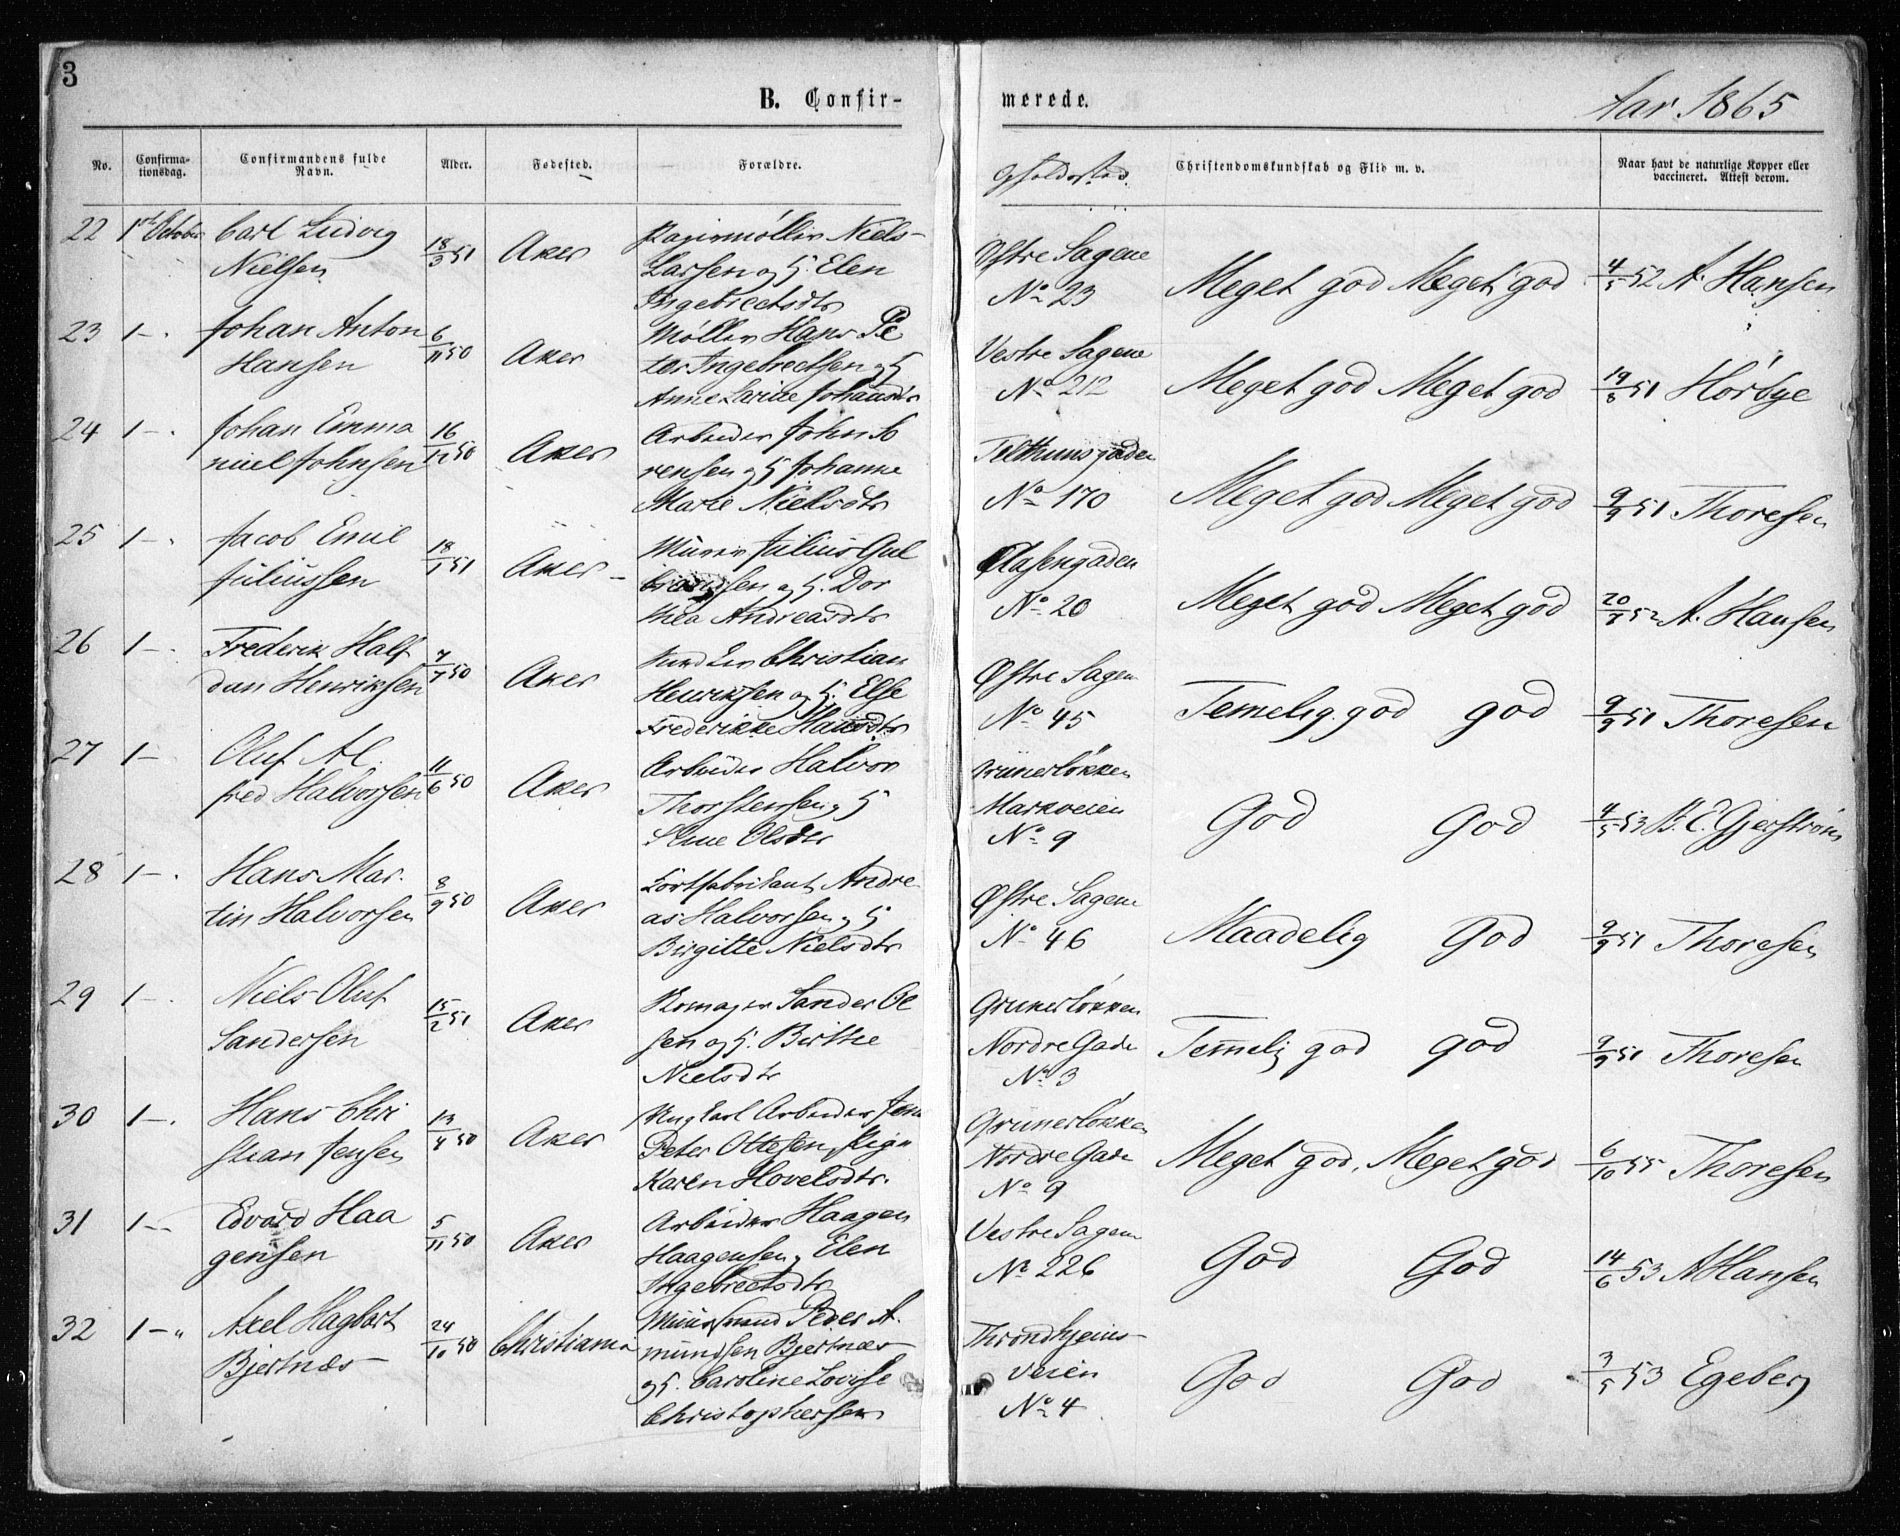 3
B. Confir-
merede.
Aar 1865
No.
Confirma-
tionsdag.
Confirmandens fulde
Navn.
Alder.
Fødested.
Forældre.
Opholdssted.
Christendomskundskab og Flid m. v.
Naar havt de naturlige Kopper eller
vaccineret. Attest derom.
22 1ste October Carl Ludvig
Nielsen
18/3 51 Aker
Papirmøller Niels
Larsen og H. Elen
Ingebretsdtr
Østre Sagene
No 23
Meget god Meget god 4/5 52 A. Hansen
23 1-. Johan Anton
Hansen
6/11 50 Aker
Møller Hans Pe
ter Ingebretsen og H
Anne Larine Johansdtr
Vestre Sagene
No 212
Meget god Meget god 19/8 51 Hørbye
24 1-. Johan Emma
nuel Johnsen
16/12 50 Aker
Arbeider John So
rensen og H Johanne
Marie Nielsdtr
Telthusgaden
No 170
Meget god Meget god 9/9 51 Thoresen
25 1-. Jacob Emil
Juliussen
18/1 51 Aker
Murer Julius Gul
brandsen og H. Dor
thea Andreasdtr
Olasengaden
No 20
Meget god Meget god 20/7 52 A. Hansen
26 1-. Frederik Half
dan Henriksen
7/7 50 Aker
Christian
Henriksen og H. Else
Frederikke Hansdtr
Østre Sagene
No 45
Temelig god god 9/9 51 Thoresen
27 1- Oluf Al
fred Halvorsen
11/6 50 Aker
Arbeider Halvor
Thorstensen og H
Olsdtr
Grünerløkken
Markveien
No 9
God God 4/5 53 B. C. Gjerstrøm
28 1-. Hans Mar
tin Halvorsen
8/9 50 Aker
Andre
as Halvorsen og H
Birgitte Nielsdtr
Østre Sagene
No 46
Maadelig God 9/9 51 Thoresen
29 1-. Niels Oluf
Sandersen
15/2 51 Aker
Sander Ol
sen og H. Birthe
Nielsdtr
Grunerløkken
Nordre Gade
No 3
Temelig god god 9/9 51 Thoresen
30 1-. Hans Chri
stian Jensen
13/4 50 Aker
Ungkarl Arbeider Jens
Peter Ottesen, Pige
Karen Hovelsdtr.
Grunerløkken
Nordre Gade
No 9
Meget god, Meget god 6/10 55 Thoresen
31 1-- Edvard Haa
gensen
5/11 50 Aker
Arbeider Haagen
Haagensen og Elen
Ingebretsdtr
Vestre Sagene
No 226
God God 14/6 53 A Hansen
32 1-" Axel Hagbart
Bjertnæs
24/10 50 Christiania
Muursvend Peder A.
mundsen Bjertnæs
og H. Caroline Lovise
Christophersen
Throndhjems-
veien
No 4
God God 3/5 53 Egeberg